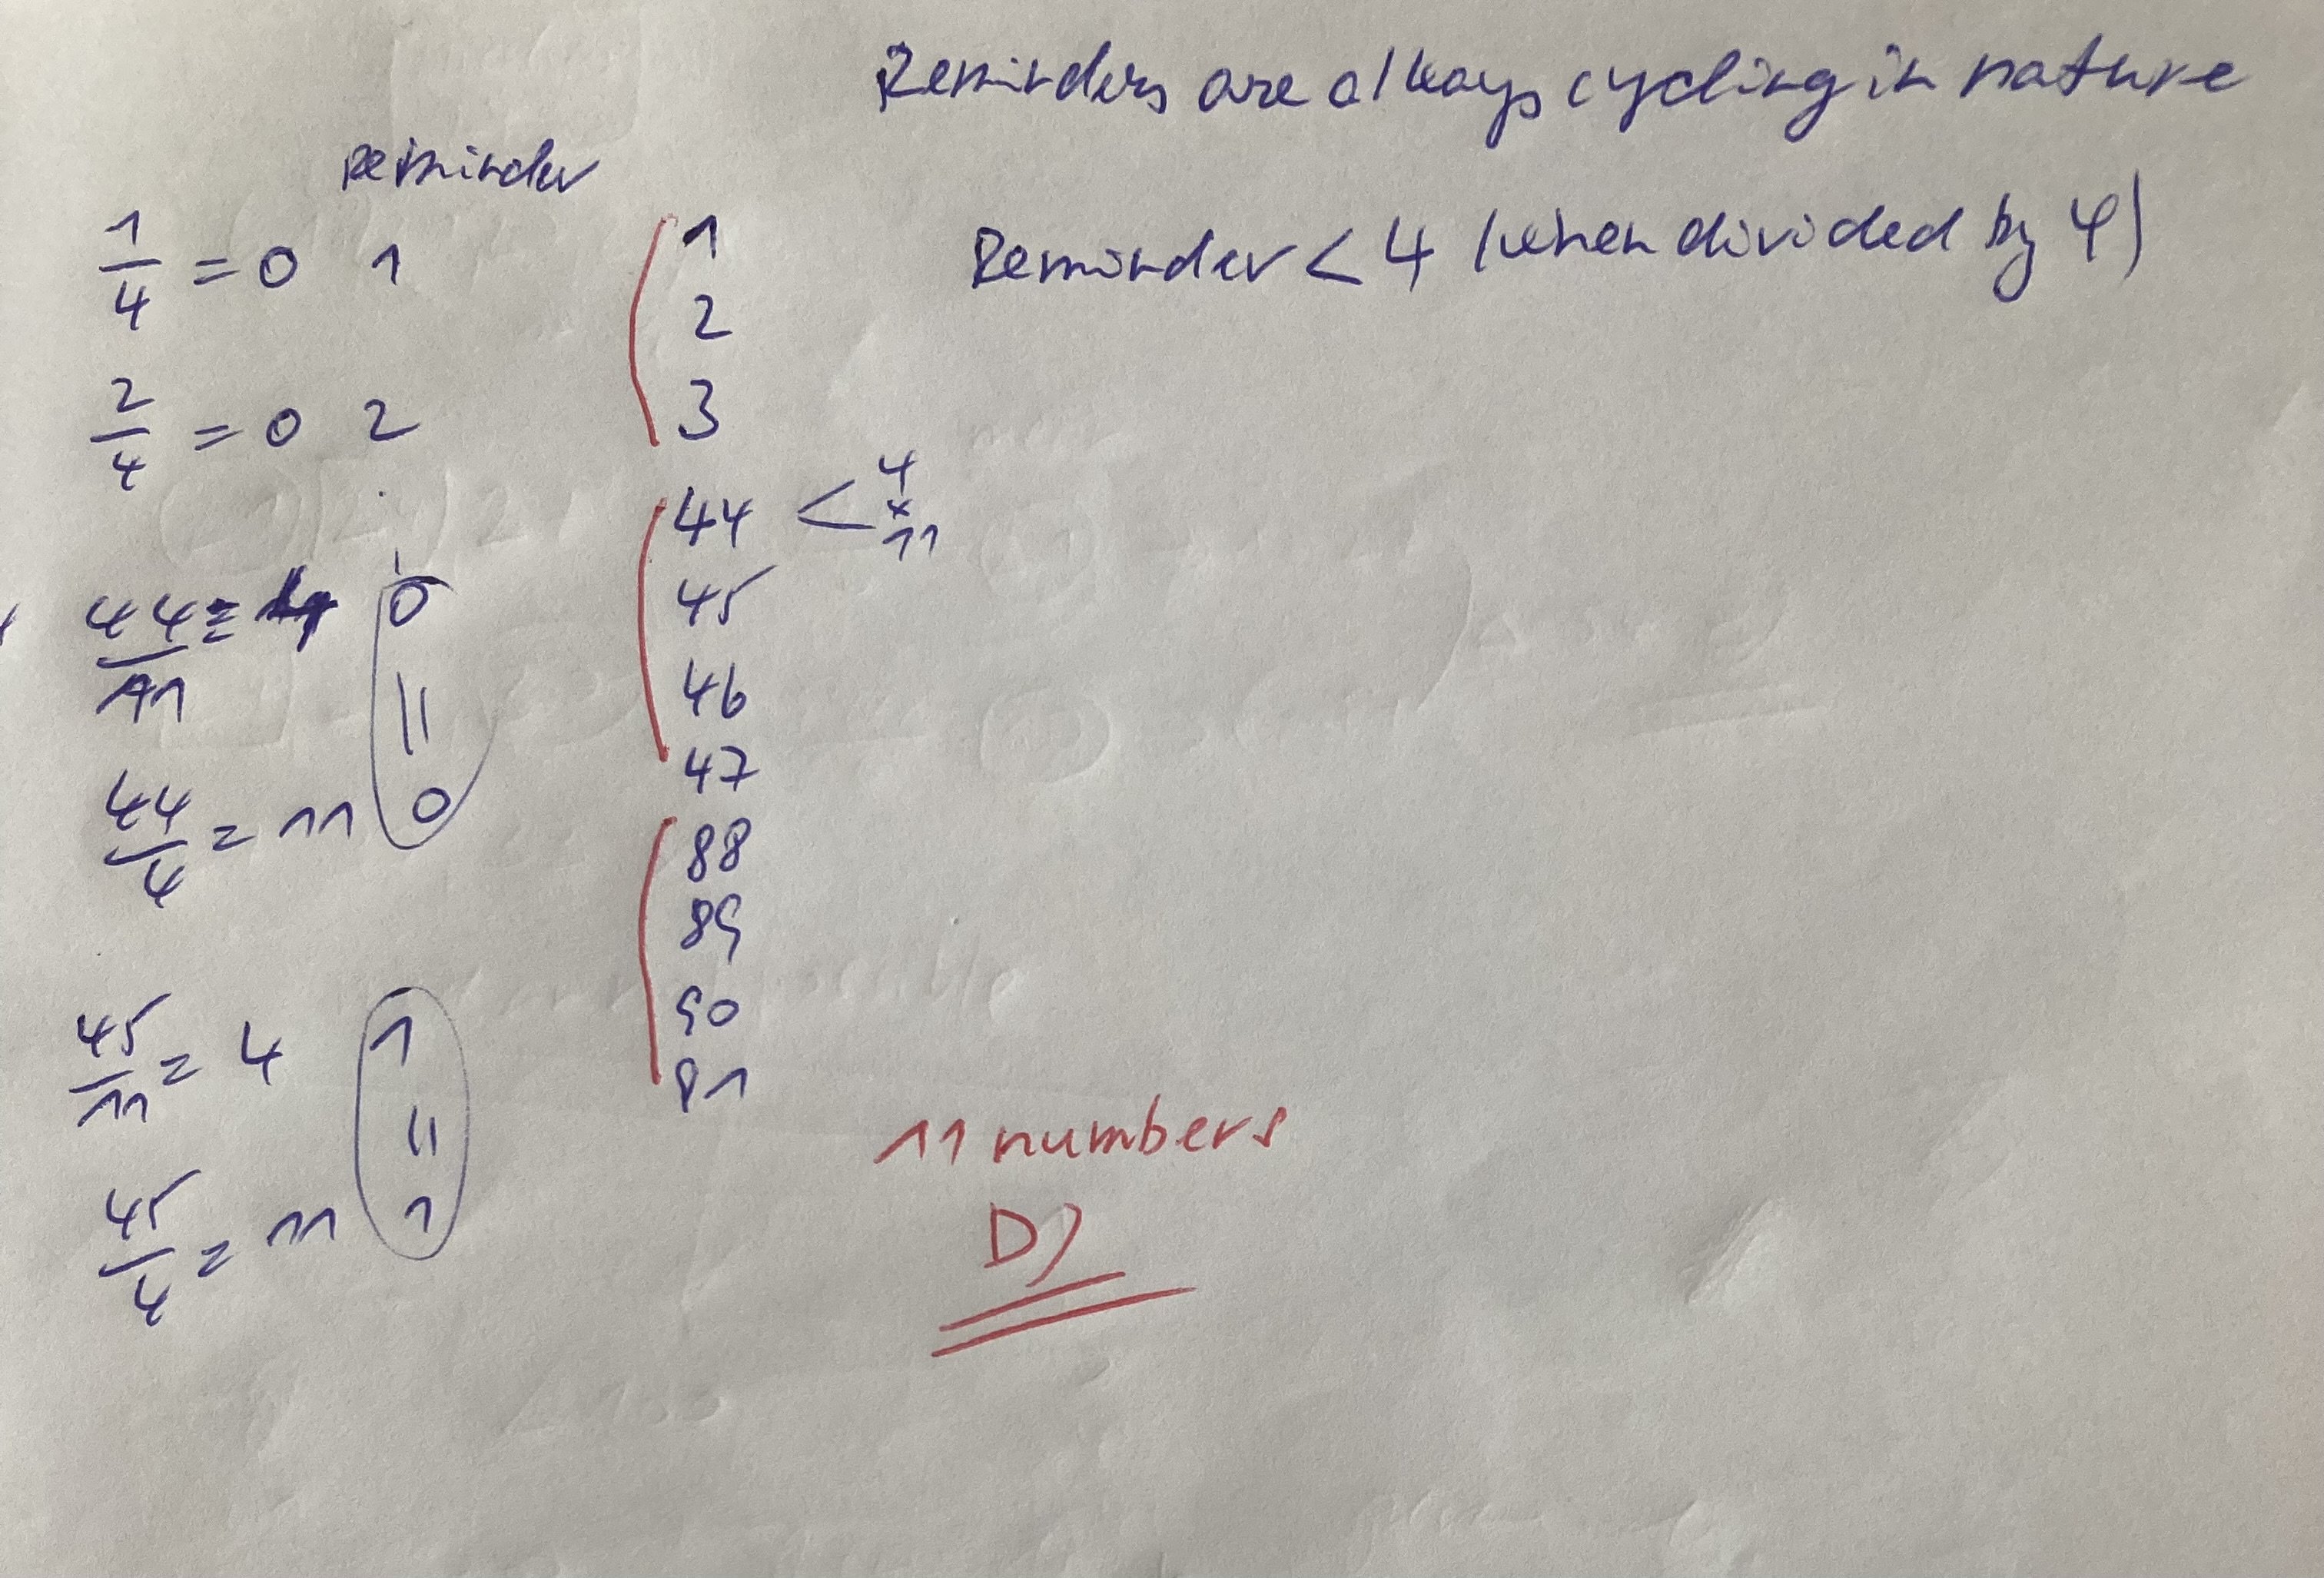 Reminders are always cycling in nature
Reminder < 4 (when divided by 4)
reminder
1/4 = 0 1
2/4 = 0 2
44/11 = 4 0
||
44/4 = 11 0
45/11 = 4 1
||
45/4 = 11 1
1
2
3
44 < 4 x 11
45
46
47
88
89
90
91
11 numbers
D)